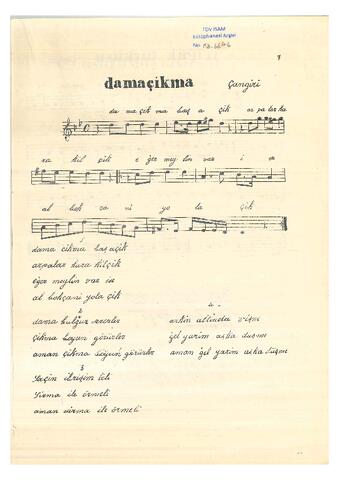 TDV İSAM
Kütüphanesi Arşivi
No.
damaçikma
Çangiri
1
da ma çik ma baş a çik ar pa lar ka
ra kil çik e ğer mey lin var i se
al boh ça ni yo la çik
1
dama çikma başaçik
arpalar kara kilçik
eğer meylin var ise
al bohçani yola çik
2
dama bulgur sererler
çikma boyun görürler
aman çikma boyun görürler
3
Saçin ibrişim teli
Sirma ile örmeli
aman sirma ile örmeli
4
altinda vişne
gel yarim aska düşme
aman gel yarim aska düşme